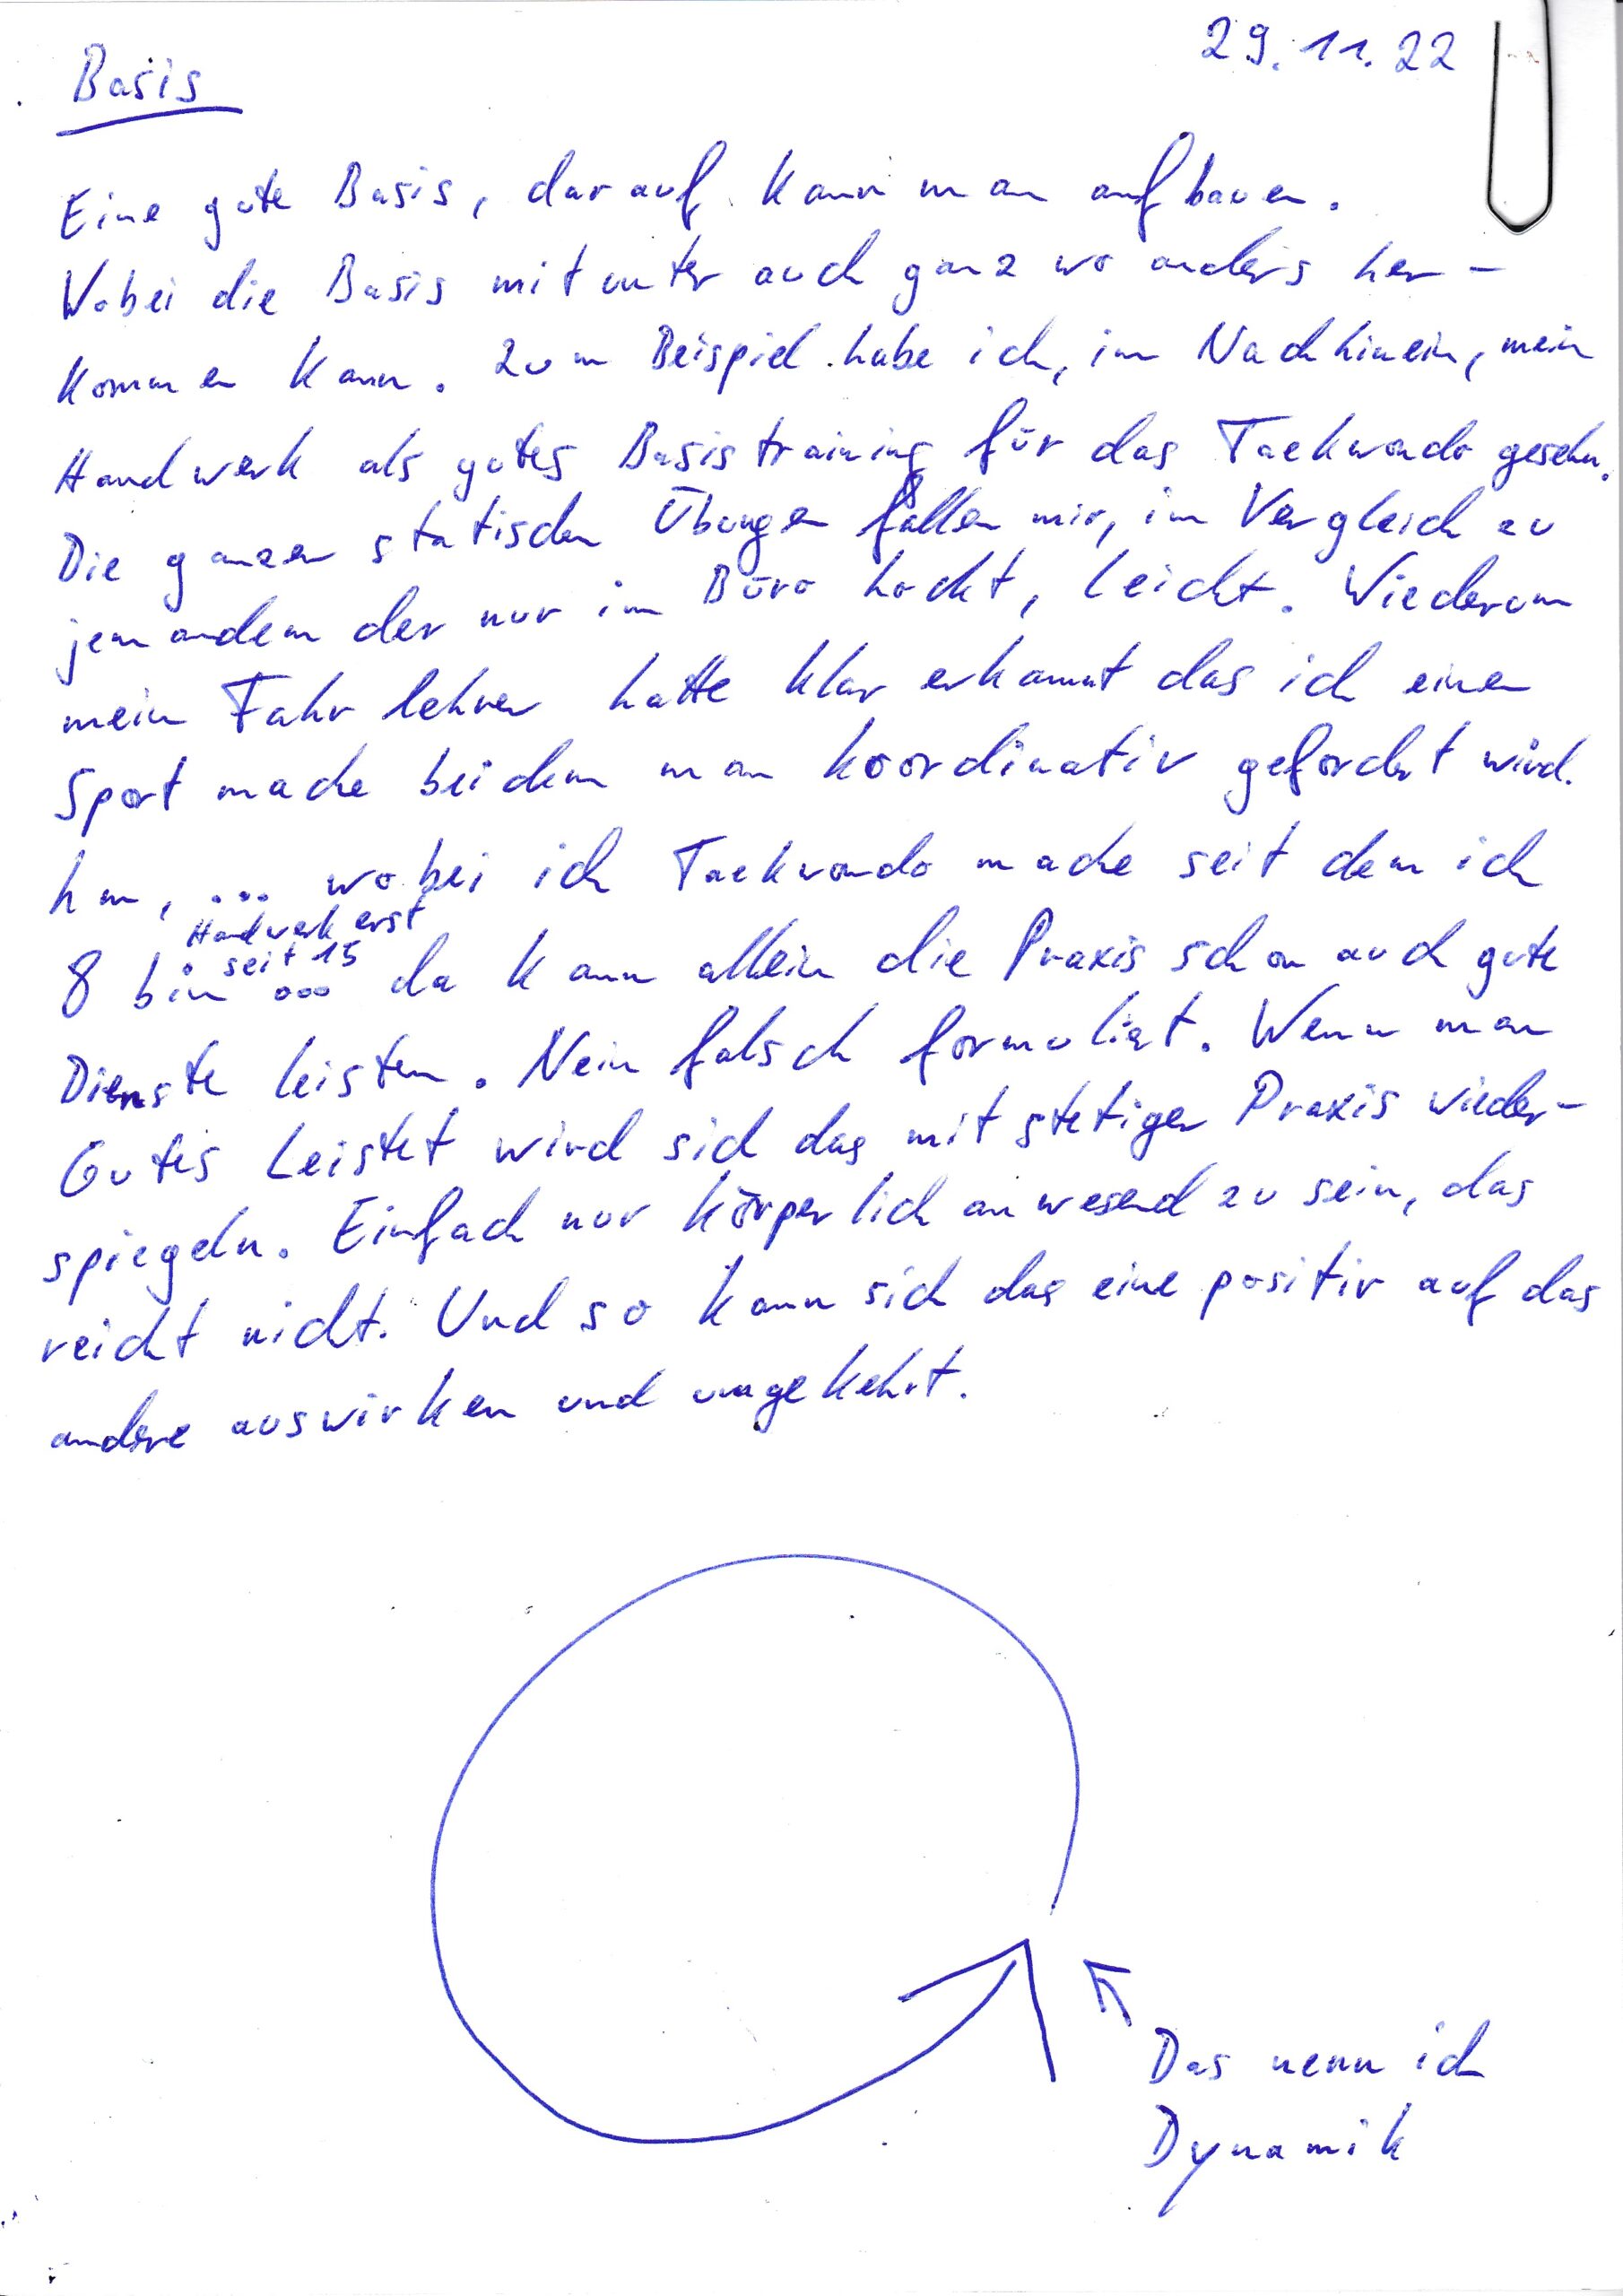 29.11.22
Basis
Eine gute Basis, darauf kann man aufbauen.
Wobei die Basis mitunter auch ganz wo anders her-
kommen kann. Zum Beispiel habe ich, im Nachhinein, mein
Handwerk als gutes Basistraining für das Taekwondo gesehen.
Die ganzen statischen Übungen fallen mir, im Vergleich zu
jemandem der nur im Büro hockt, leicht. Wiederum
mein Fahrlehrer hatte klar erkannt das ich einen
Sport mache bei dem man koordinativ gefordert wird.
hm, ... wobei ich Taekwondo mache seit dem ich
Handwerk erst
seit 15
8 bin ... da kann allein die Praxis schon auch gute
Dienste leisten. Nein falsch formuliert. Wenn man
Gutes Leistet wird sich das mit stetiger Praxis wieder-
spiegeln. Einfach nur körperlich anwesend zu sein, das
reicht nicht. Und so kann sich das eine positiv auf das
andere auswirken und umgekehrt.
Das nenn ich
Dynamik